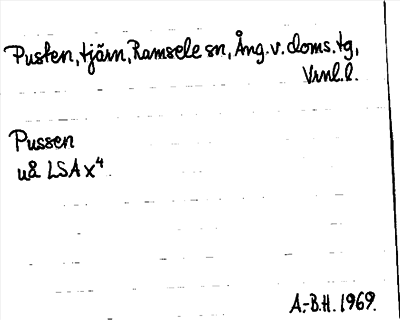 Pusten, tjärn, Ramsele sn, Ång. v. doms. tg,
Vrnl. l.
Pussen
u& LSA x⁴
A.-B.H. 1969.